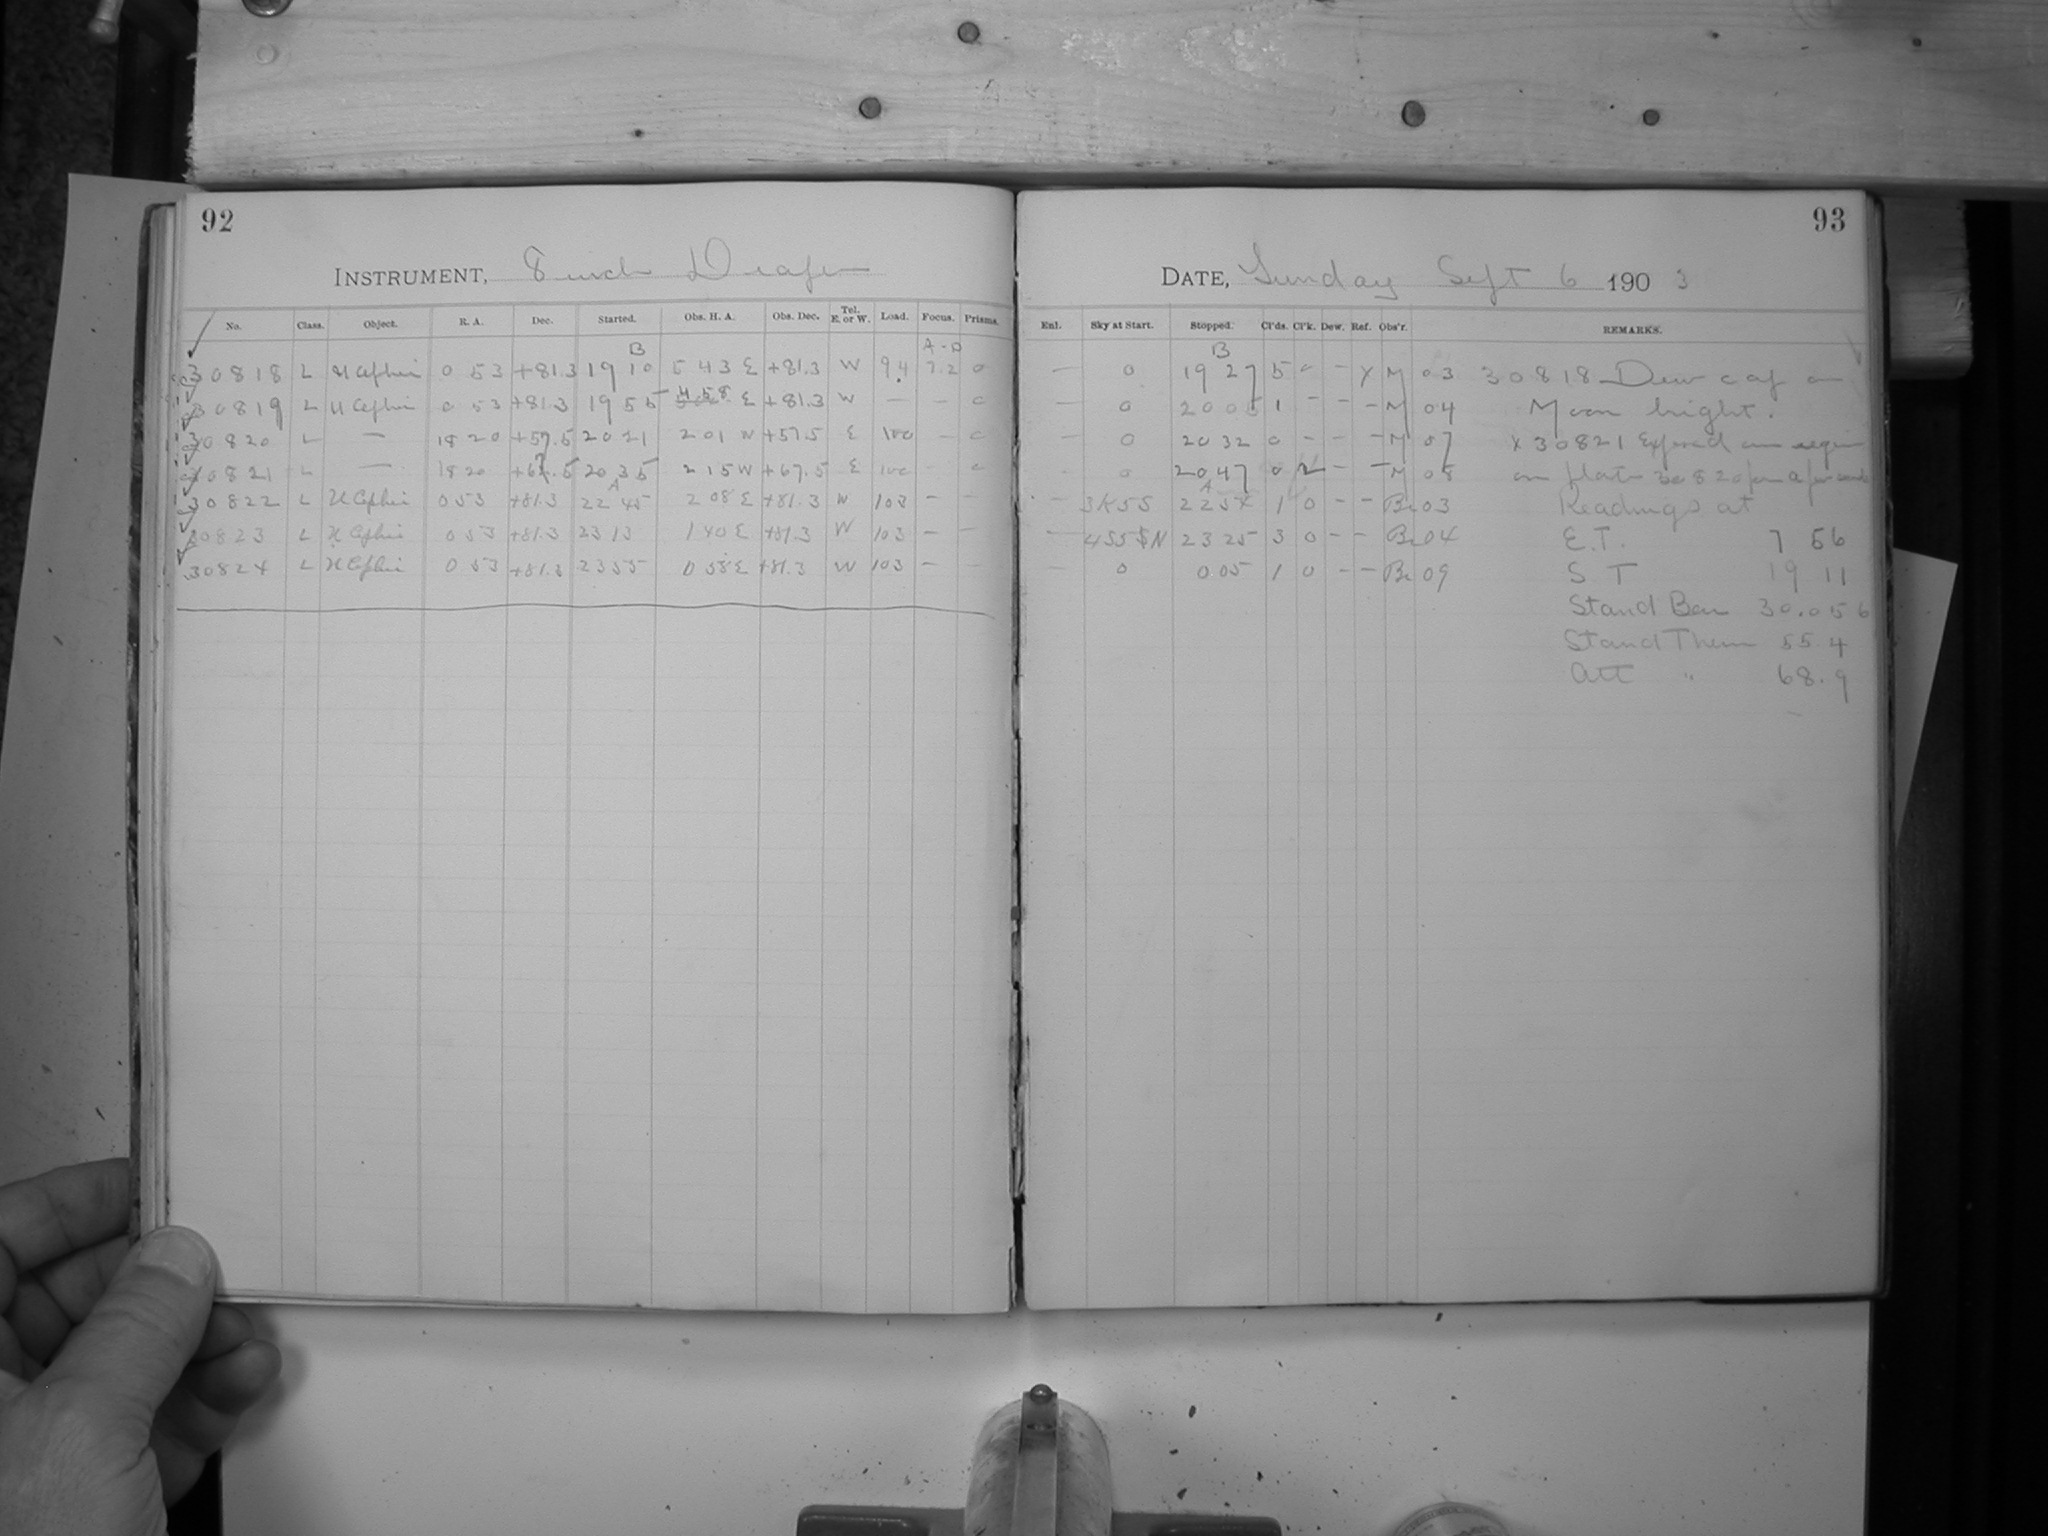 92
INSTRUMENT, 8 inch Draper
No. Class. Object. R. A. Dec. Started. Obs. H. A. Obs. Dec. Tel. E. or W. Load. Focus. Prisms.
B A-D
30818 L U Cephei 0 53 +81.3 19 10 5 43 E +81.3 W 94 7.2 0
30819 L U Cephei 0 53 +81.3 19 55 4 58 E +81.3 W — — 0
30820 L — 18 20 +57.5 20 21 2 01 W +57.5 E 100 — 0
30821 L — 18 20 +67.5 20 35 2 15 W +67.5 E 100 — 0
A
30822 L U Cephei 0 53 +81.3 22 45 2 08 E +81.3 W 103 — —
30823 L U Cephei 0 53 +81.3 23 13 1 40 E +81.3 W 103 — —
30824 L U Cephei 0 53 +81.3 23 55 0 58 E +81.3 W 103 — —
93
DATE, Sunday Sept 6 1903
Enl. Sky at Start. Stopped. Cl'ds. Cl'k. Dew. Ref. Obs'r. REMARKS.
B
— 0 19 27 5 - - Y M 03 30818 Dew cap on
— 0 20 05 1 - - - M 04 Moon bright.
— 0 20 32 0 - - - M 07 x 30821 Exposed on region
— 0 20 47 0 2 - - M 08 on plate 30820 for a few seconds
A
— 3K5S 22 54 1 0 - - Br 03 Readings at
— 4S5$N 23 25 3 0 - - Br 04 E.T. 7 56
— 0 0 05 1 0 - - Br 09 S T 19 11
Stand Bar 30.056
Stand Therm 55.4
Att " 68.9